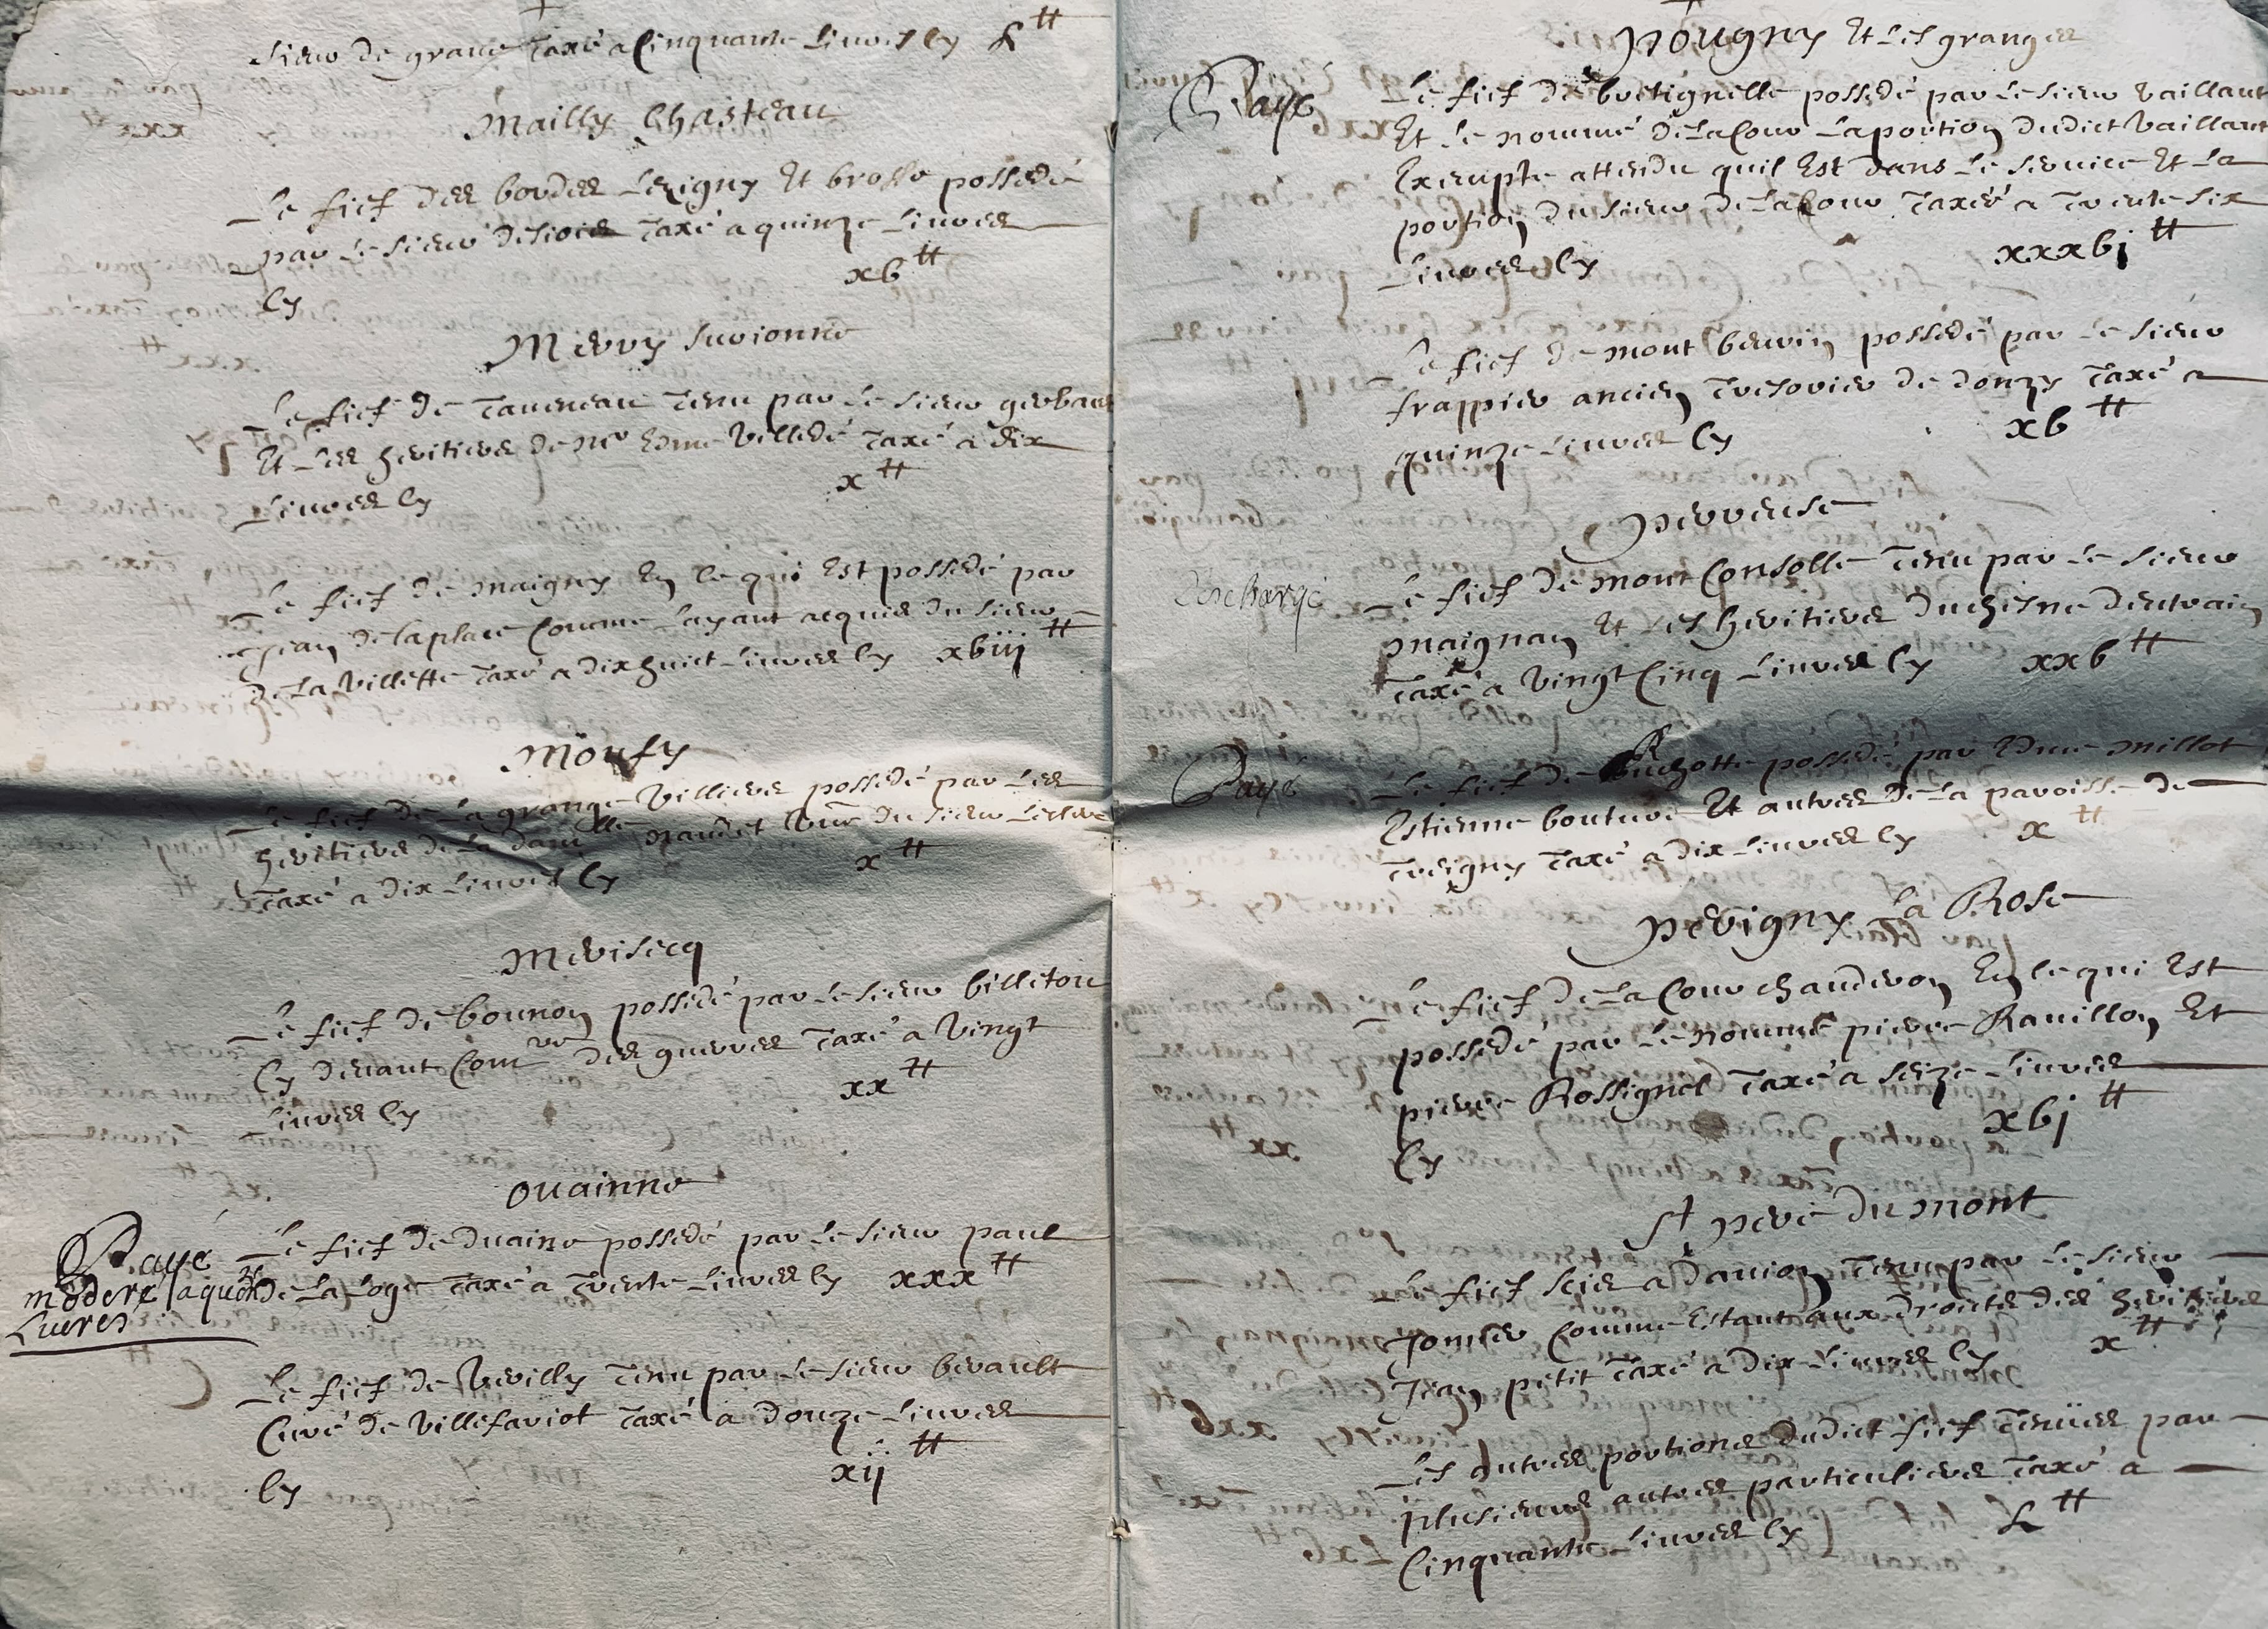 sieur de grave taxé a Cinquante Livres Cy L ℔
Mailly Chasteau
Le fief des bordes Lesigny Et brosse possedé
par Le sieur taxé a quinze Livres
Cy xb ℔
Merry suryonne
Le fief de taueneau tenu par Le sieur gerbaut
Et Les heritiers de Me Edme Villedé taxé a dix
Livres Cy x ℔
Le fief de maigny En Ce qui Est possedé par
Jean de la place Comme Layant acquis du sieur
De La Villette taxé a dix huict Livres Cy xbiij ℔
Moufy
Le fief de La grange Villiers possedé par Les
heritiers de La damlle naudet du sieur
taxé a dix Livres Cy x ℔
Merisecq
Le fief de bounon possedé par Le sieur billetou
Cy deuant Comre des guerres taxé a Vingt
Livres Cy xx ℔
Ouainne
Payé
moderé a
Liures
Le fief de Ouaine possedé par Le sieur paul
De La Loge taxé a trente Livres Cy xxx ℔
Le fief de Vevilly tenu par Le sieur berault
Curé de Villefariot taxé a douze Livres
Cy xij ℔
Pougny Et Les granges
Payé
Le fief de bretignelle possedé par Le sieur Vaillant
Et Le nommé deLaCour La portion dudict Vaillant
Exempte attendu quil Est dans Le service Et La
portion du sieur deLaCour taxée a trente six
Livres Cy xxxbj ℔
Le fief de mont beruin possedé par Le sieur
frappier ancien tresorier de donzy taxé a
quinze Livres Cy xb ℔
Perreuse
Deschargé
Le fief de mont Consolle tenu par Le sieur
maignan Et Les heritiers duchesne dentrain
taxé a Vingt Cinq Livres Cy xxb ℔
Payé
Le fief de possedé par Edme millot
Estienne bouture Et autres de La paroisse de
treigny taxé a dix Livres Cy x ℔
Perigny La Rose
Le fief de La Cour chauderon En Ce qui Est
possedé par Le nommé pierre Rauillon Et
pierre Rossignol taxé a seize Livres
Cy xbj ℔
St pere du mont
Le fief scis a Dauion tenu par Le sieur
Comme Estant aux droicts des heritiers
Jean petit taxé a dix Livres Cy x ℔
Les autres portions dudict fief tenües par
plusieurs autres particuliers taxé a
Cinquante Livres Cy L ℔